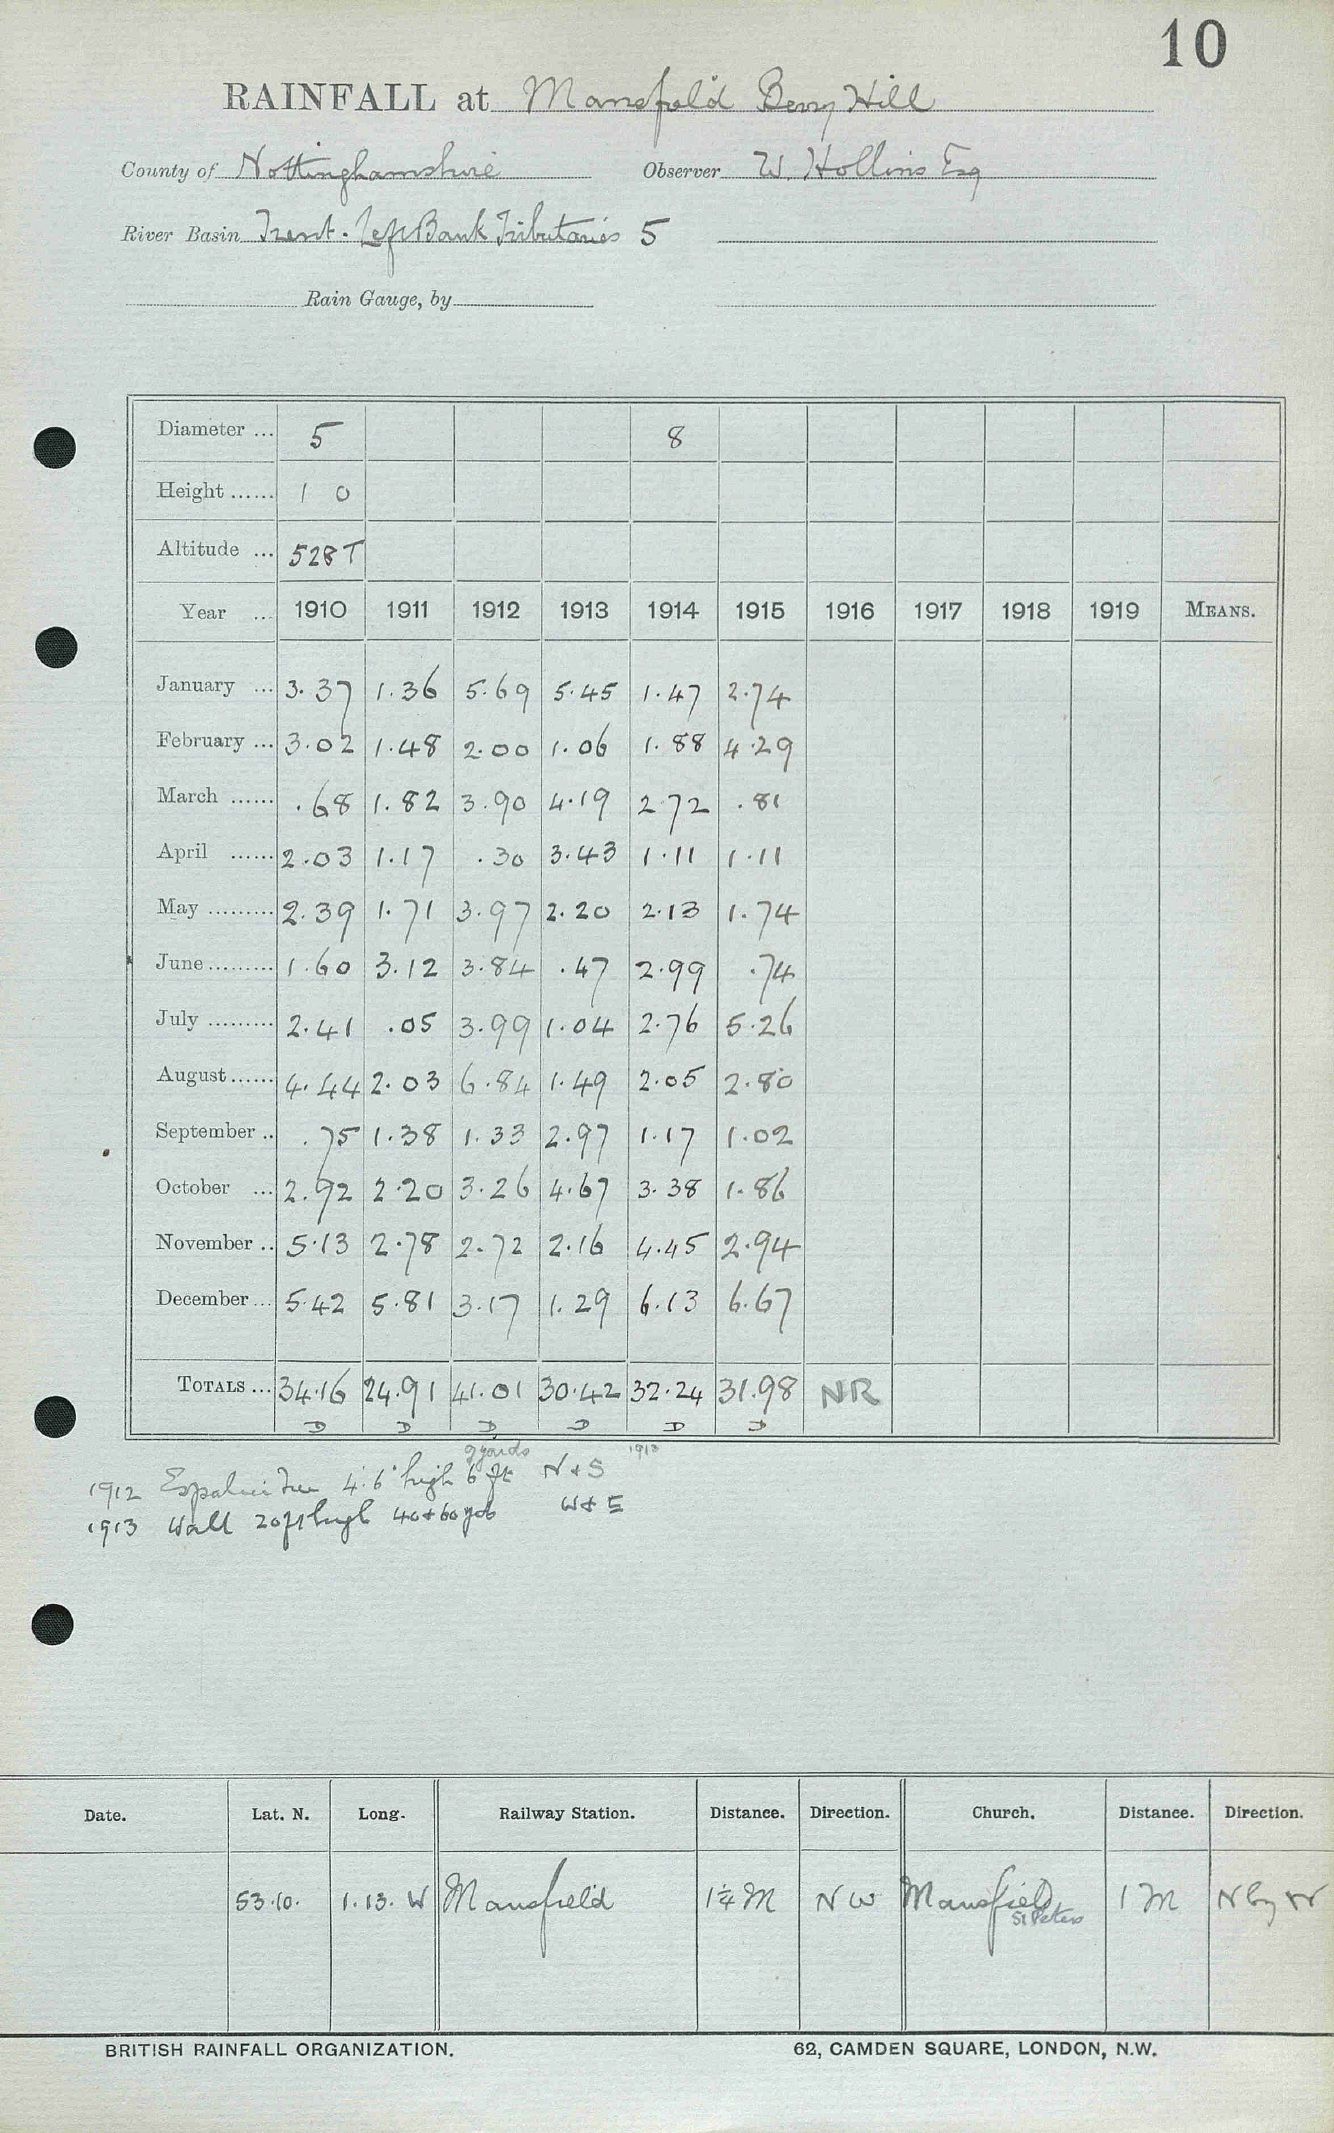 10
RAINFALL at Mansfield Berry Hill
County of Nottinghamshire Observer W. Hollins Esq
River Basin Trent. Left Bank Tributaries 5
Rain Gauge, by
Diameter ... 5 8
Height ...... 1 0
Altitude ... 528 T
Year ... 1910 1911 1912 1913 1914 1915 1916 1917 1918 1919 MEANS.
January ... 3.37 1.36 5.69 5.45 1.47 2.74
February ... 3.02 1.48 2.00 1.06 1.88 4.29
March ...... .68 1.82 3.90 4.19 2.72 .81
April ...... 2.03 1.17 .30 3.43 1.11 1.11
May ......... 2.39 1.71 3.97 2.20 2.13 1.74
June ......... 1.60 3.12 3.84 .47 2.99 .74
July ......... 2.41 .05 3.99 1.04 2.76 5.26
August ...... 4.44 2.03 6.84 1.49 2.05 2.80
September .. .75 1.38 1.33 2.97 1.17 1.02
October ... 2.92 2.20 3.26 4.67 3.38 1.86
November .. 5.13 2.78 2.72 2.16 4.45 2.94
December ... 5.42 5.81 3.17 1.29 6.13 6.67
TOTALS ... 34.16 24.91 41.01 30.42 32.24 31.98 NR
D D D D D D
9 yards 1913
1912 Espalier Tree 4' 6" high 6 ft N & S
1913 Wall 20 ft high 40 & 60 yds W & E
Date. Lat. N. Long. Railway Station. Distance. Direction. Church. Distance. Direction.
53.10. 1.13. W Mansfield 1¼ M N W Mansfield 1 M N by W
St Peters
BRITISH RAINFALL ORGANIZATION. 62, CAMDEN SQUARE, LONDON, N.W.